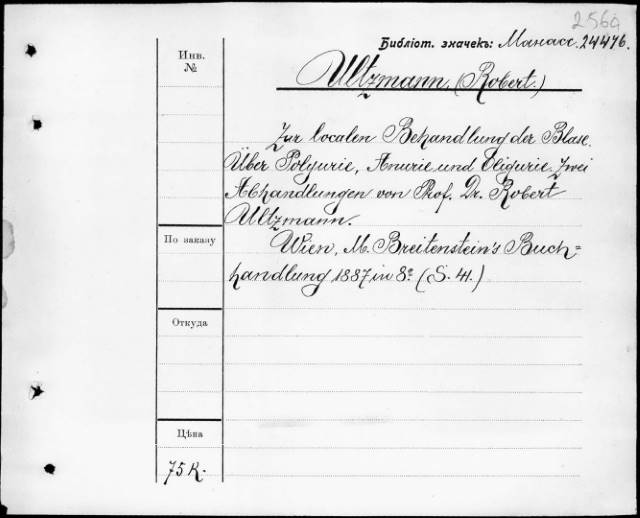 2569
Библіот. значекъ: Манасс. 24476.
Инв.
№
Ultzmann, (Robert.)
Zur localen Behandlung der Blase.
Über Polyurie, Anurie und Oligurie. Zwei
Abhandlungen von Prof. Dr. Robert
Ultzmann.
По заказу
Wien, M. Breitenstein's Buch=
handlung 1887 in 8º (S. 41.)
Откуда
Цѣна
75 К.